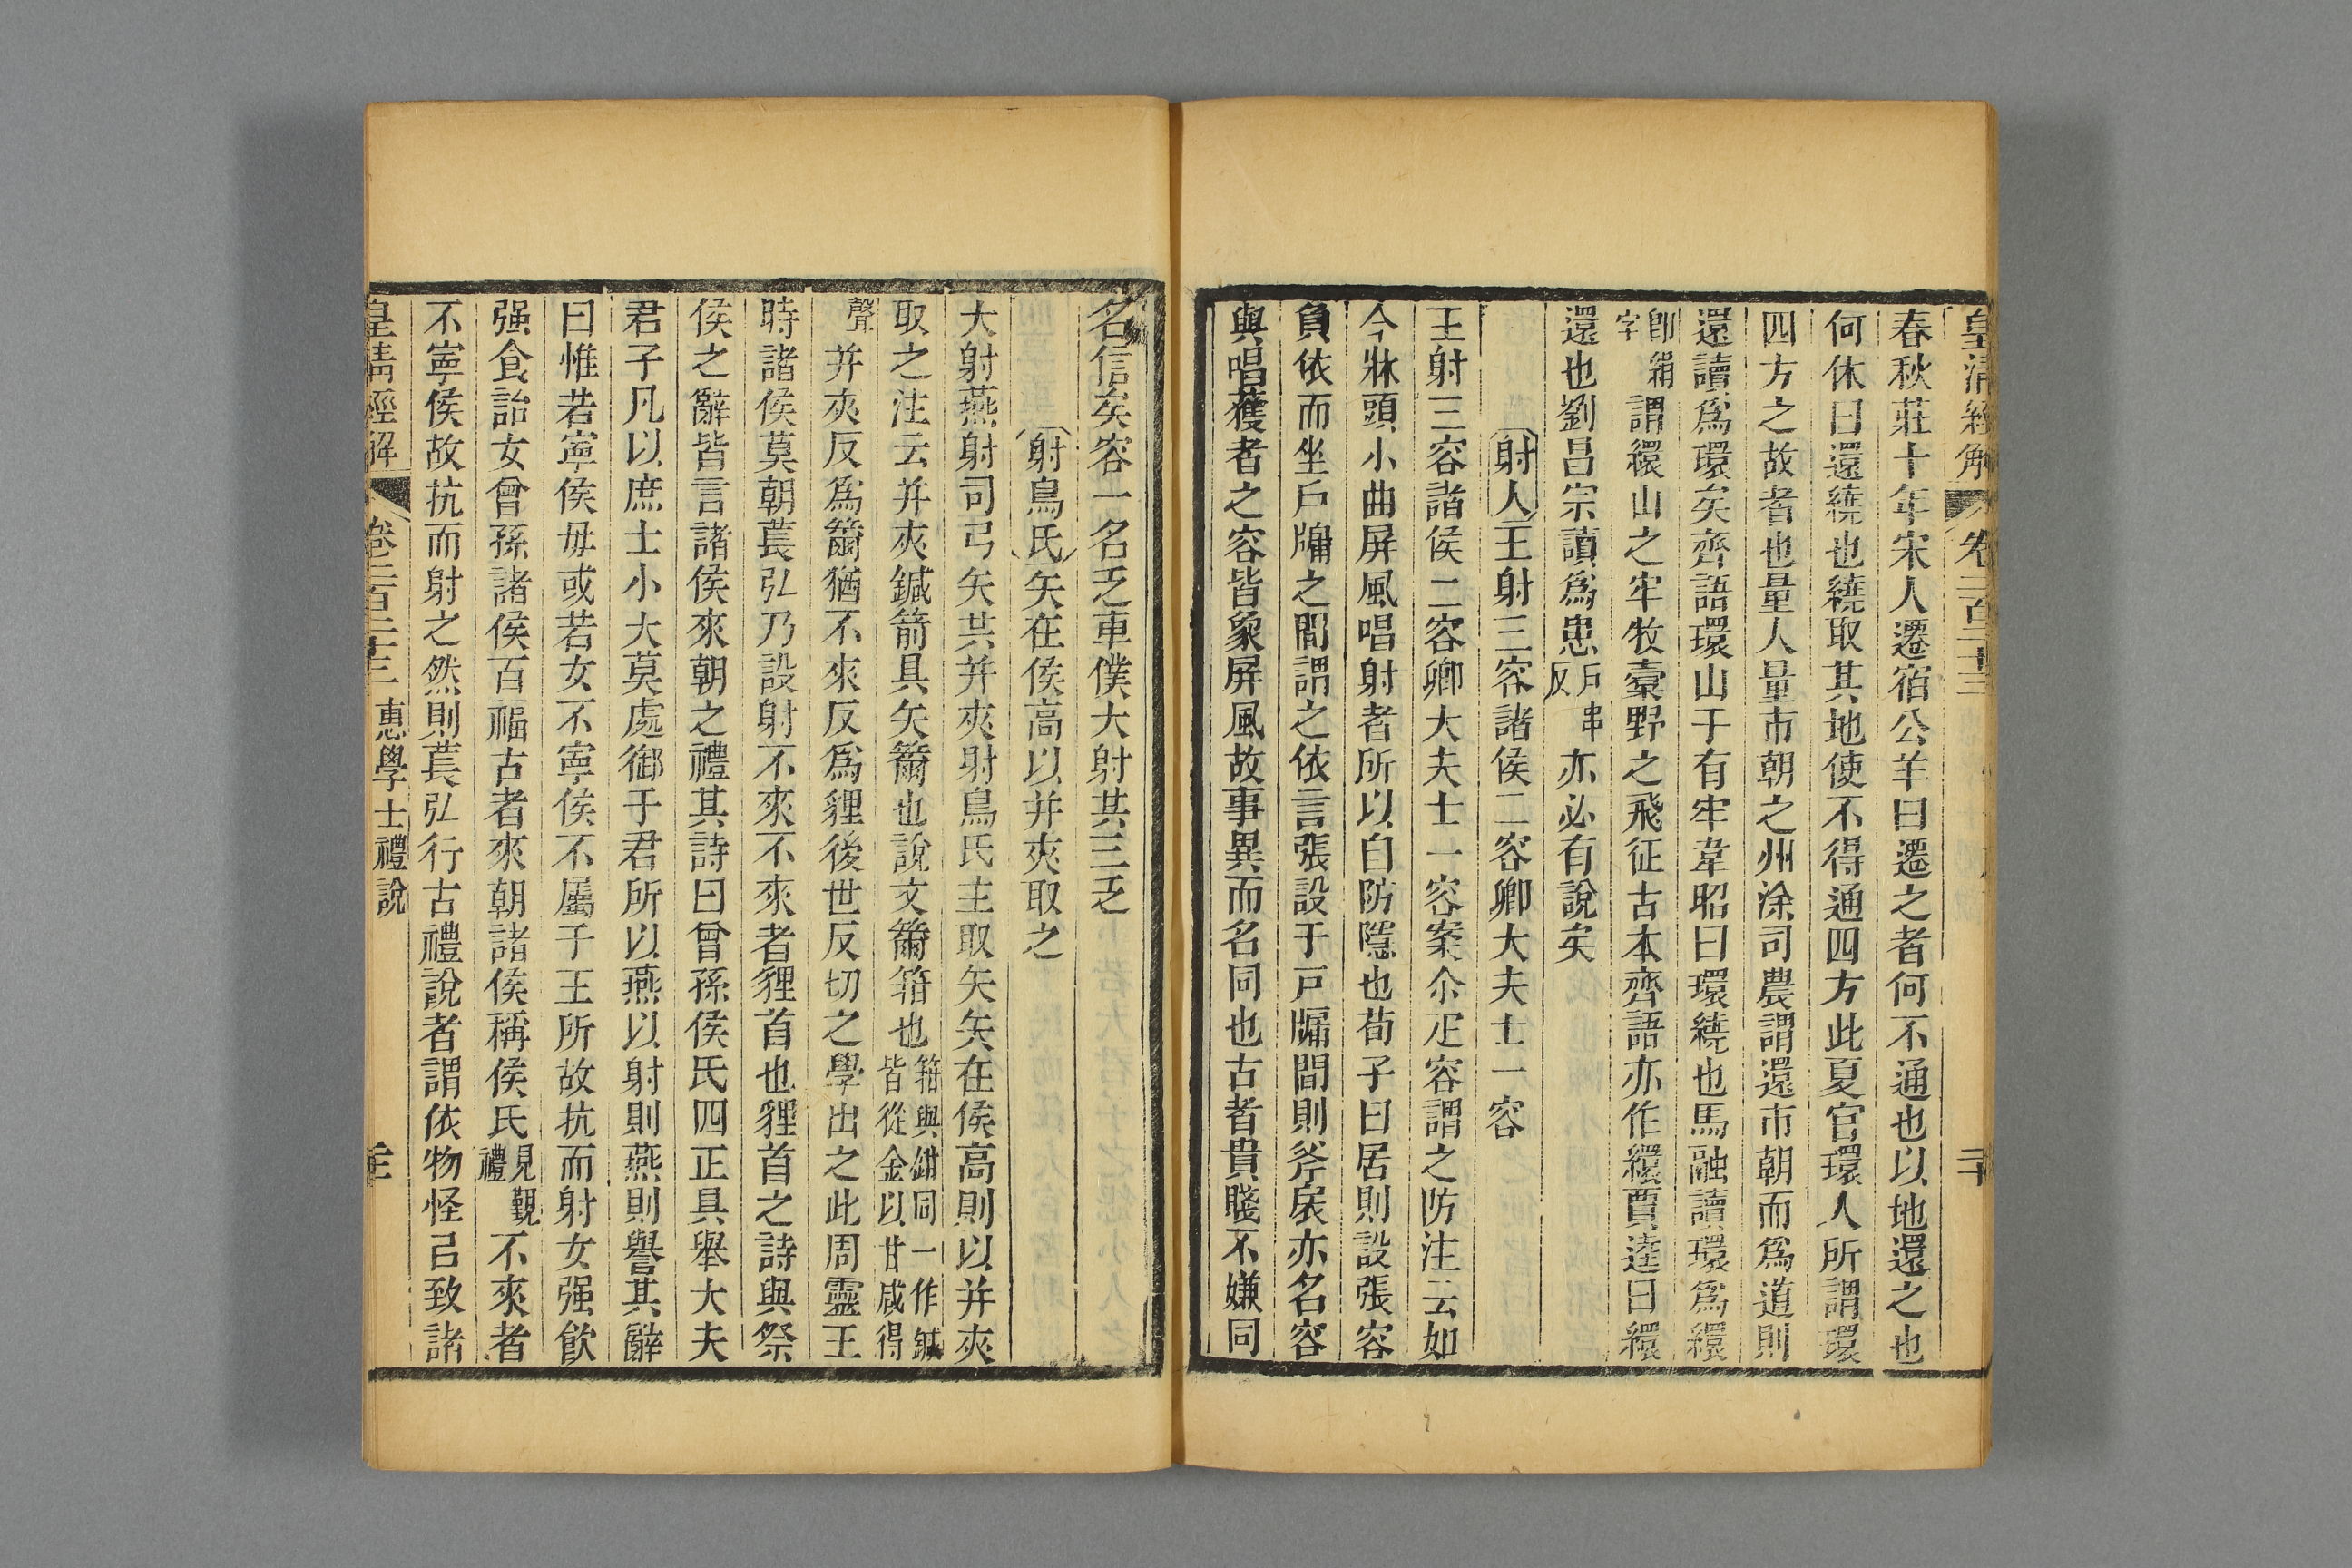 皇清經解 卷二百二十三 二十
春秋莊十年宋人遷宿公羊曰遷之者何不通也以地還之也
何休曰還繞也繞取其地使不得通四方此夏官環人所謂環
四方之故者也量人量市朝之州涂司農謂還市朝而爲道則
還讀爲環矣齊語環山于有牢韋昭曰環繞也馬融讀環爲繯
卽絹字謂繯山之牢牧橐野之飛征古本齊語亦作繯賈逵曰繯
還也劉昌宗讀爲患戶串反亦必有說矣
射人王射三容諸侯二容卿大夫士一容
王射三容諸侯二容卿大夫士一容案尒疋容謂之防注云如
今牀頭小曲屏風唱射者所以自防隱也荀子曰居則設張容
負依而坐戶牖之間謂之依言張設于戶牖間則斧扆亦名容
與唱獲者之容皆象屏風故事異而名同也古者貴賤不嫌同
名信矣容一名乏車僕大射共三乏
射鳥氏矢在侯高以并夾取之
大射燕射司弓矢共并夾射鳥氏主取矢矢在侯高則以并夾
取之注云并夾鍼箭具矢籋也說文籋箝也箝與鉗同一作鍼皆從金以甘咸得
聲并夾反爲籋猶不來反爲貍後世反切之學出之此周靈王
時諸侯莫朝萇弘乃設射不來不來者貍首也貍首之詩與祭
侯之辭皆言諸侯來朝之禮其詩曰曾孫侯氏四正具舉大夫
君子凡以庶士小大莫處御于君所以燕以射則燕則譽其辭
曰惟若寧侯毋或若女不寧侯不屬于王所故抗而射女强飲
强食詒女曾孫諸侯百福古者來朝諸侯稱侯氏見覲禮不來者
不寧侯故抗而射之然則萇弘行古禮說者謂依物怪召致諸
皇清經解 卷二百二十三 惠學士禮說